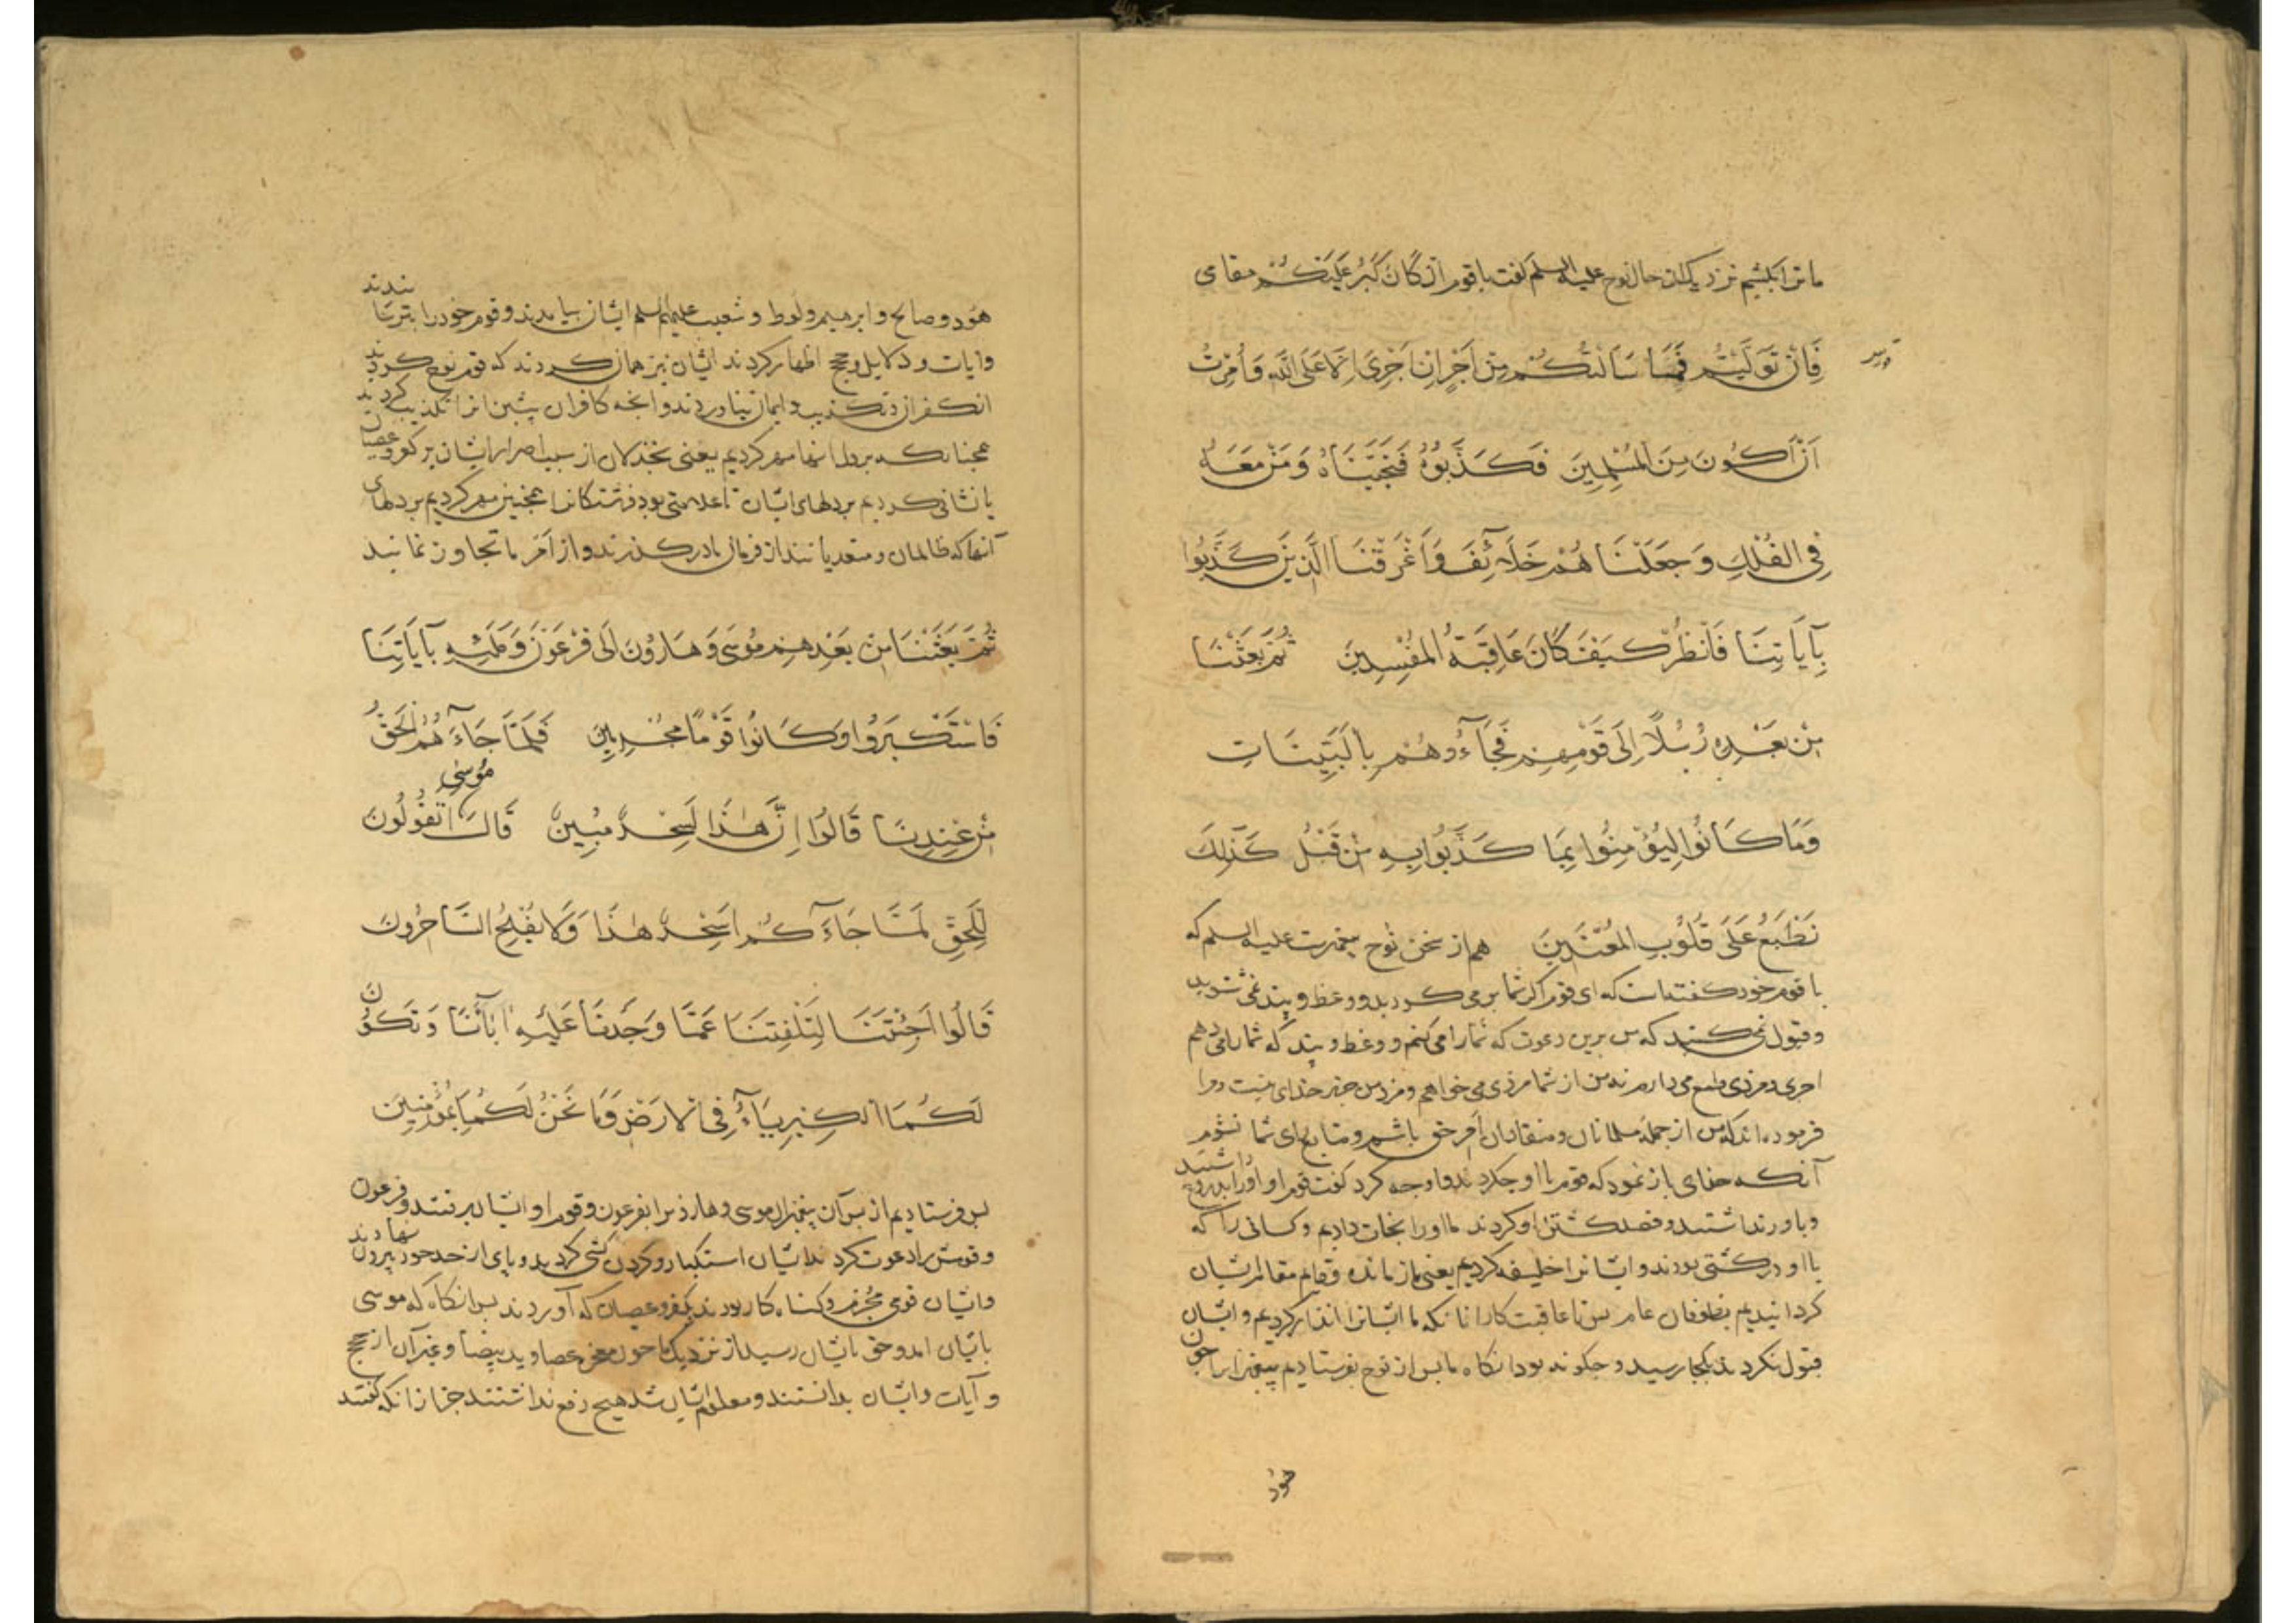 ما ترا بکشیم نزدیک از حال نوح علیه السلم گفت با قوم ان کان کبر علیکم مقامی
فَاِنْ تَوَلَّيْتُمْ فَمَا سَاَلْتُكُمْ مِنْ اَجْرٍ اِنْ اَجْرِىَ اِلَّا عَلَى اللّٰهِ وَاُمِرْتُ
اَنْ اَكُونَ مِنَ الْمُسْلِمِينَ فَكَذَّبُوهُ فَنَجَّيْنَاهُ وَمَنْ مَعَهُ
فِى الْفُلْكِ وَجَعَلْنَاهُمْ خَلَآئِفَ وَاَغْرَقْنَا الَّذِينَ كَذَّبُوا
بِآيَاتِنَا فَانْظُرْ كَيْفَ كَانَ عَاقِبَةُ الْمُفْسِدِينَ ثُمَّ بَعَثْنَا
مِنْ بَعْدِهِ رُسُلًا اِلَى قَوْمِهِمْ فَجَآءُوهُمْ بِالْبَيِّنَاتِ
وَمَا كَانُوا لِيُؤْمِنُوا بِمَا كَذَّبُوا بِهِ مِنْ قَبْلُ كَذٰلِكَ
نَطْبَعُ عَلَى قُلُوبِ الْمُعْتَدِينَ هم از سخن نوح پیغمبرست علیه السلم که
با قوم خود گفته است که ای قوم اگر شما برمی کردید و وعظ و پند نمی شنوید
و قبول نمی کنید که من برین دعوت که شما را می کنم و وعظ و پند که شما را می دهم
اجری و مزدی طمع می دارم نه من از شما مزدی می خواهم و مزد من جز بر خدای نیست و مرا
فرموده اند که من از جمله مسلمانان و منقادان امر حق باشم و متابع رای شما نشوم
آنکه خدای باز نمود که قوم با او چکردند و او چه کرد گفت قوم او او را بدروغ داشتند
و باور نداشتند و قصد کشتن او کردند ما او را نجات دادیم و کسانی را که
با او در کشتی بودند و ایشانرا خلیفه کردیم یعنی باز مانده و قایم مقام ایشان
گردانیدیم بطوفان عام پس تا عاقبت کار انانکه ما ایشانرا انذار کردیم و ایشان
قبول نکردند بکجا رسید و چگونه بود انگاه ما پس از نوح بفرستادیم پیغمبرانرا چون
هود
هود و صالح و ابرهیم و لوط و شعیب علیهم السلم ایشان بیامدند و قوم خود را بترسانیدند
و ایات و دلایل و حجج اظهار کردند ایشان نیز همان کردند که قوم نوح کردند
از کفر و تکذیب و ایمان نیاوردند و انچه کافران پیشین انرا تکذیب کردند
همچنانکه بر دل انها مهر کردیم یعنی بخذلان از سبب اصرار ایشان بر کفر و عصیان
یا نشانی کردیم بر دلهای ایشان تا علامتی بود فرشتکانرا همچنین مهر کردیم بر دلهای
آنها که ظالمان و متعدیانند از فرمان ما درگذرند و از امر ما تجاوز نمایند
ثُمَّ بَعَثْنَا مِنْ بَعْدِهِمْ مُوسَى وَهَارُونَ اِلَى فِرْعَوْنَ وَمَلَئِهِ بِآيَاتِنَا
فَاسْتَكْبَرُوا وَكَانُوا قَوْمًا مُجْرِمِينَ فَلَمَّا جَآءَهُمُ الْحَقُّ
مِنْ عِنْدِنَا قَالُوا اِنَّ هٰذَا لَسِحْرٌ مُبِينٌ قَالَ مُوسَى اَتَقُولُونَ
لِلْحَقِّ لَمَّا جَآءَكُمْ اَسِحْرٌ هٰذَا وَلَا يُفْلِحُ السَّاحِرُونَ
قَالُوا اَجِئْتَنَا لِتَلْفِتَنَا عَمَّا وَجَدْنَا عَلَيْهِ آبَآئَنَا وَتَكُونَ
لَكُمَا الْكِبْرِيَآءُ فِى الْاَرْضِ وَمَا نَحْنُ لَكُمَا بِمُؤْمِنِينَ
پس فرستادیم از پس آن پیغمبران موسی و هارون را بفرعون و قوم او ایشان برفتند و فرعون
و قومش را دعوت کردند ایشان استکبار و گردن کشی کردند و پای از حد خود بیرون نهادند
و ایشان قومی مجرم و کناه کار بودند بکفر و عصیان که آوردند پس انگاه که موسی
بایشان امد و حق بایشان رسید از نزدیک ما چون معجز عصا و ید بیضا و غیر آن از حجج
و آیات و ایشان بدانستند و معلوم ایشان شد هیچ دفع نداشتند جز از انکه گفتند